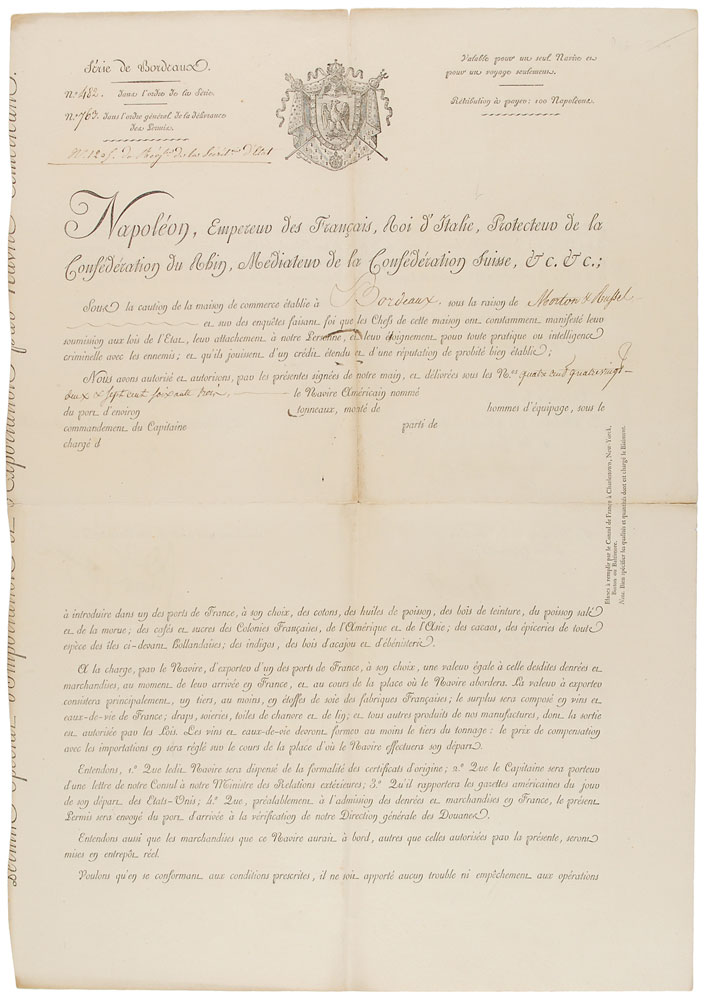 Série de Bordeaux.
N.º 482. dans l'ordre de la Série.
N.º 763. dans l'ordre général de la délivrance
des Permis.
d'Etat
Valable pour un seul Navire et
pour un voyage seulement.
Rétribution à payer: 100 Napoléons.
Napoléon, Empereur des Français, Roi d'Italie, Protecteur de la
Confédération du Rhin, Médiateur de la Confédération Suisse, &c. &c.;
Sous la caution de la maison de commerce établie à Bordeaux, sous la raison de Morton & Russel
et sur des enquêtes faisant foi que les Chefs de cette maison ont constamment manifesté leur
soumission aux lois de l'Etat, leur attachement à notre Personne, et leur éloignement pour toute pratique ou intelligence
criminelle avec les ennemis; et qu'ils jouissent d'un crédit étendu et d'une réputation de probité bien établie;
Nous avons autorisé et autorisons, par les présentes signées de notre main, et délivrées sous les N.os quatre cent quatre vingt
deux & sept cent soixante trois, le Navire Américain nommé
du port d'environ tonneaux, monté de hommes d'équipage, sous le
commandement du Capitaine parti de
chargé d
Blancs à remplir par le Consul de France à Charlestown, New-Yorck,
Boston ou Baltimore.
Nota. Bien spécifier les qualités et quantités dont est chargé le Bâtiment.
à introduire dans un des ports de France, à son choix, des cotons, des huiles de poisson, des bois de teinture, du poisson salé
et de la morue; des cafés et sucres des Colonies Françaises, de l'Amérique et de l'Asie; des cacaos, des épiceries de toute
espèce des îles ci-devant Hollandaises; des indigos, des bois d'acajou et d'ébénisterie.
A la charge, par le Navire, d'exporter d'un des ports de France, à son choix, une valeur égale à celle desdites denrées et
marchandises, au moment de leur arrivée en France, et au cours de la place où le Navire abordera. La valeur à exporter
consistera principalement, un tiers, au moins, en étoffes de soie des fabriques Françaises; le surplus sera composé en vins et
eaux-de-vie de France; draps, soieries, toiles de chanvre et de lin; et tous autres produits de nos manufactures, dont la sortie
est autorisée par les Lois. Les vins et eaux-de-vie devront former au moins le tiers du tonnage: le prix de compensation
avec les importations en sera réglé sur le cours de la place d'où le Navire effectuera son départ.
Entendons, 1.º Que ledit Navire sera dispensé de la formalité des certificats d'origine; 2.º Que le Capitaine sera porteur
d'une lettre de notre Consul à notre Ministre des Relations extérieures; 3.º Qu'il rapportera les gazettes américaines du jour
de son départ des Etats-Unis; 4.º Que, préalablement à l'admission des denrées et marchandises en France, le présent
Permis sera envoyé du port d'arrivée à la vérification de notre Direction générale des Douanes.
Entendons aussi que les marchandises que ce Navire aurait à bord, autres que celles autorisées par la présente, seront
mises en entrepôt réel.
Voulons qu'en se conformant aux conditions prescrites, il ne soit apporté aucun trouble ni empêchement aux opérations